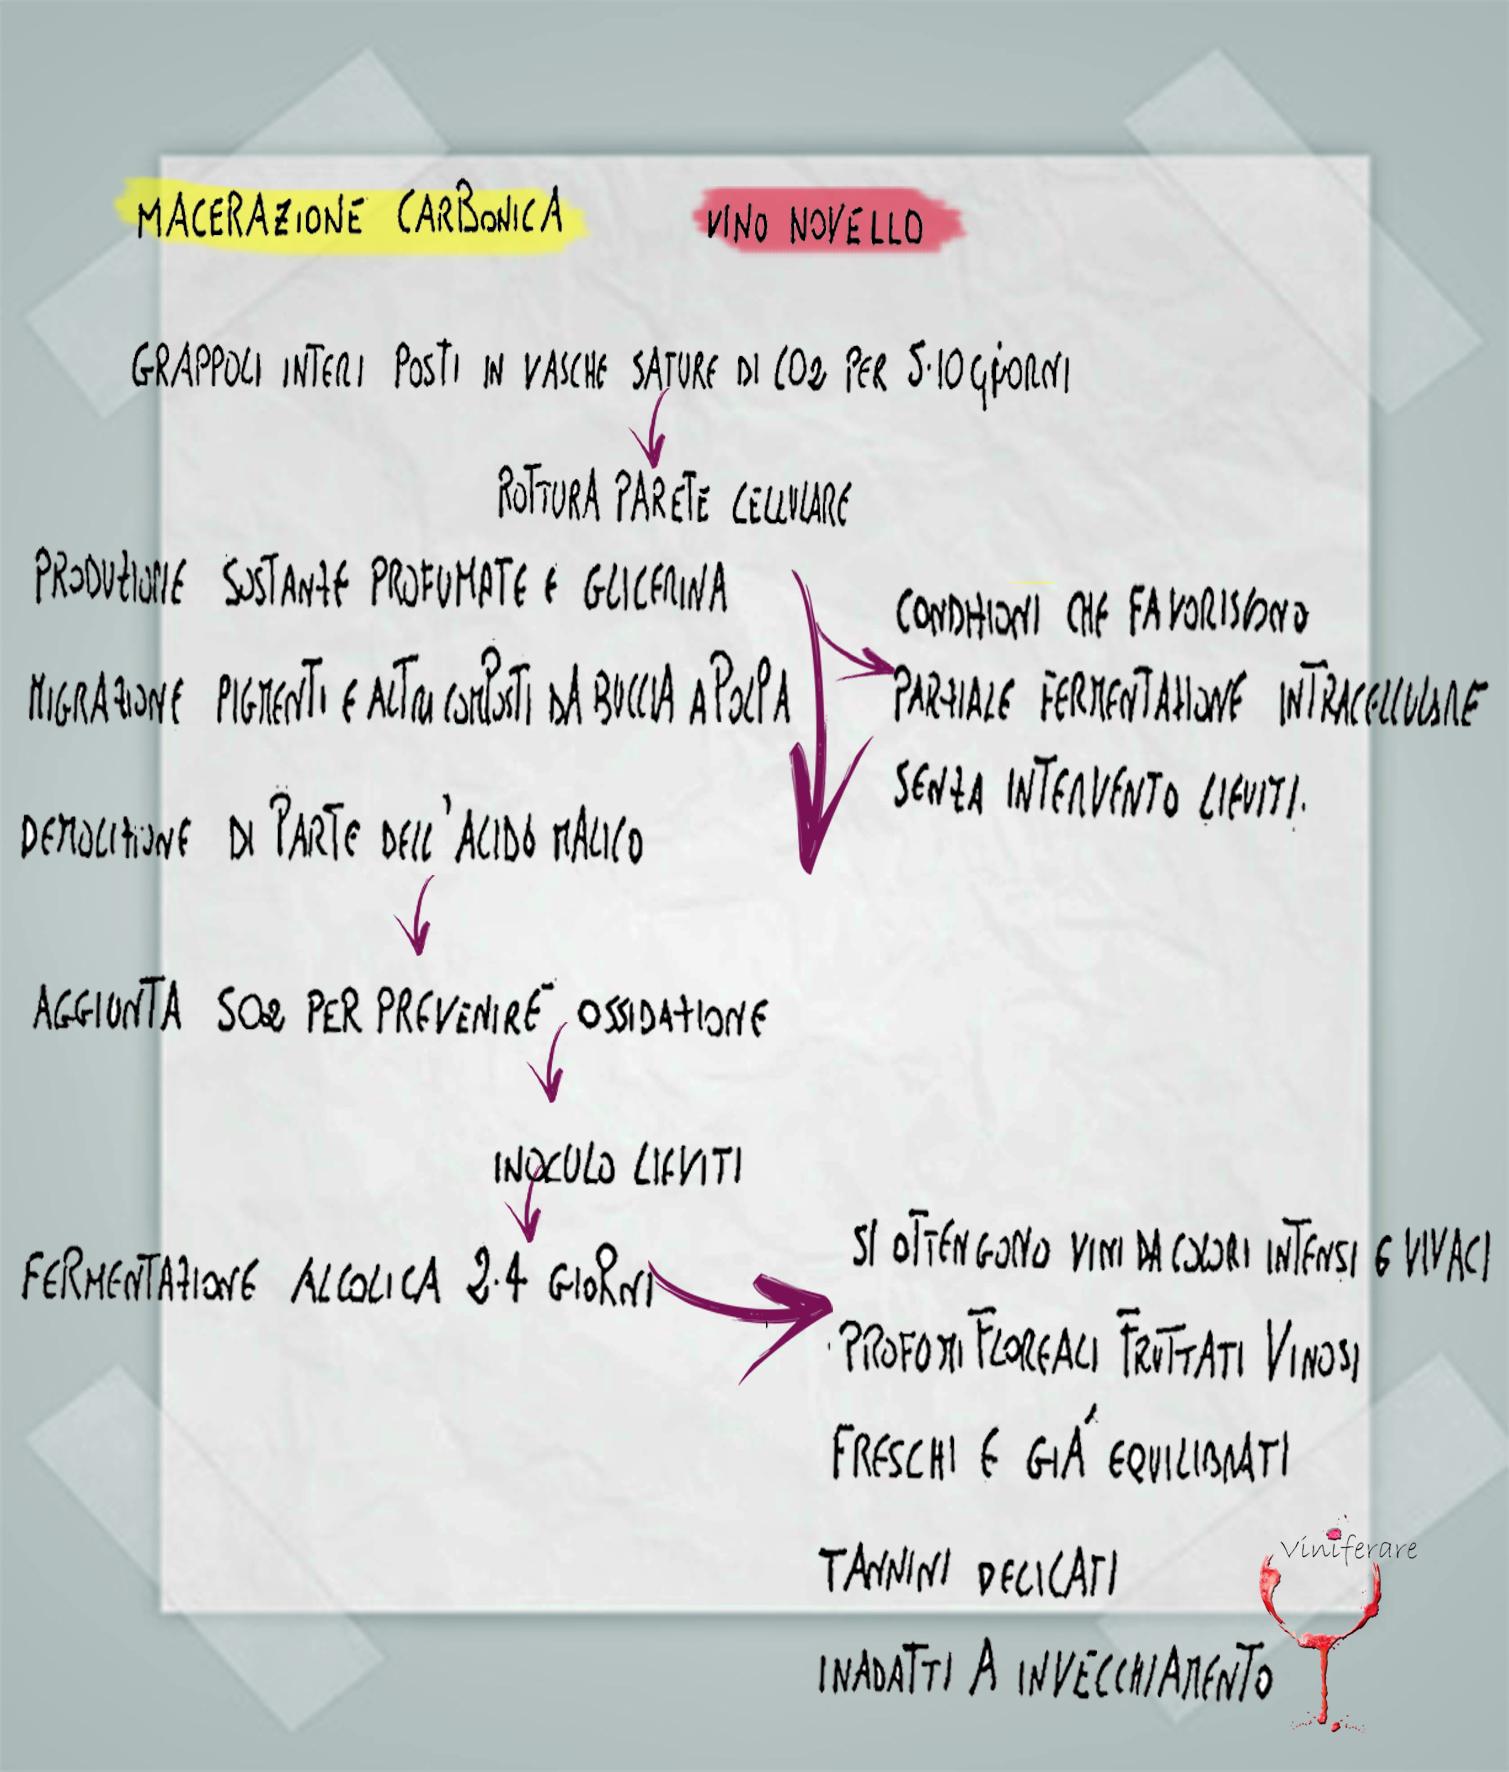 MACERAZIONE CARBONICA VINO NOVELLO
GRAPPOLI INTERI POSTI IN VASCHE SATURE DI CO2 PER 5·10 GIORNI
ROTTURA PARETE CELLULARE
PRODUZIONE SOSTANZE PROFUMATE E GLICERINA
MIGRAZIONE PIGMENTI E ALTRI COMPOSTI DA BUCCIA A POLPA
DEMOLIZIONE DI PARTE DELL'ACIDO MALICO
CONDIZIONI CHE FAVORISCONO
PARZIALE FERMENTAZIONE INTRACELLULARE
SENZA INTERVENTO LIEVITI.
AGGIUNTA SO2 PER PREVENIRE OSSIDAZIONE
INOCULO LIEVITI
FERMENTAZIONE ALCOLICA 2·4 GIORNI
SI OTTENGONO VINI DA COLORI INTENSI E VIVACI
PROFUMI FLOREALI FRUTTATI VINOSI
FRESCHI E GIÁ EQUILIBRATI
TANNINI DELICATI
INADATTI A INVECCHIAMENTO
Viniferare